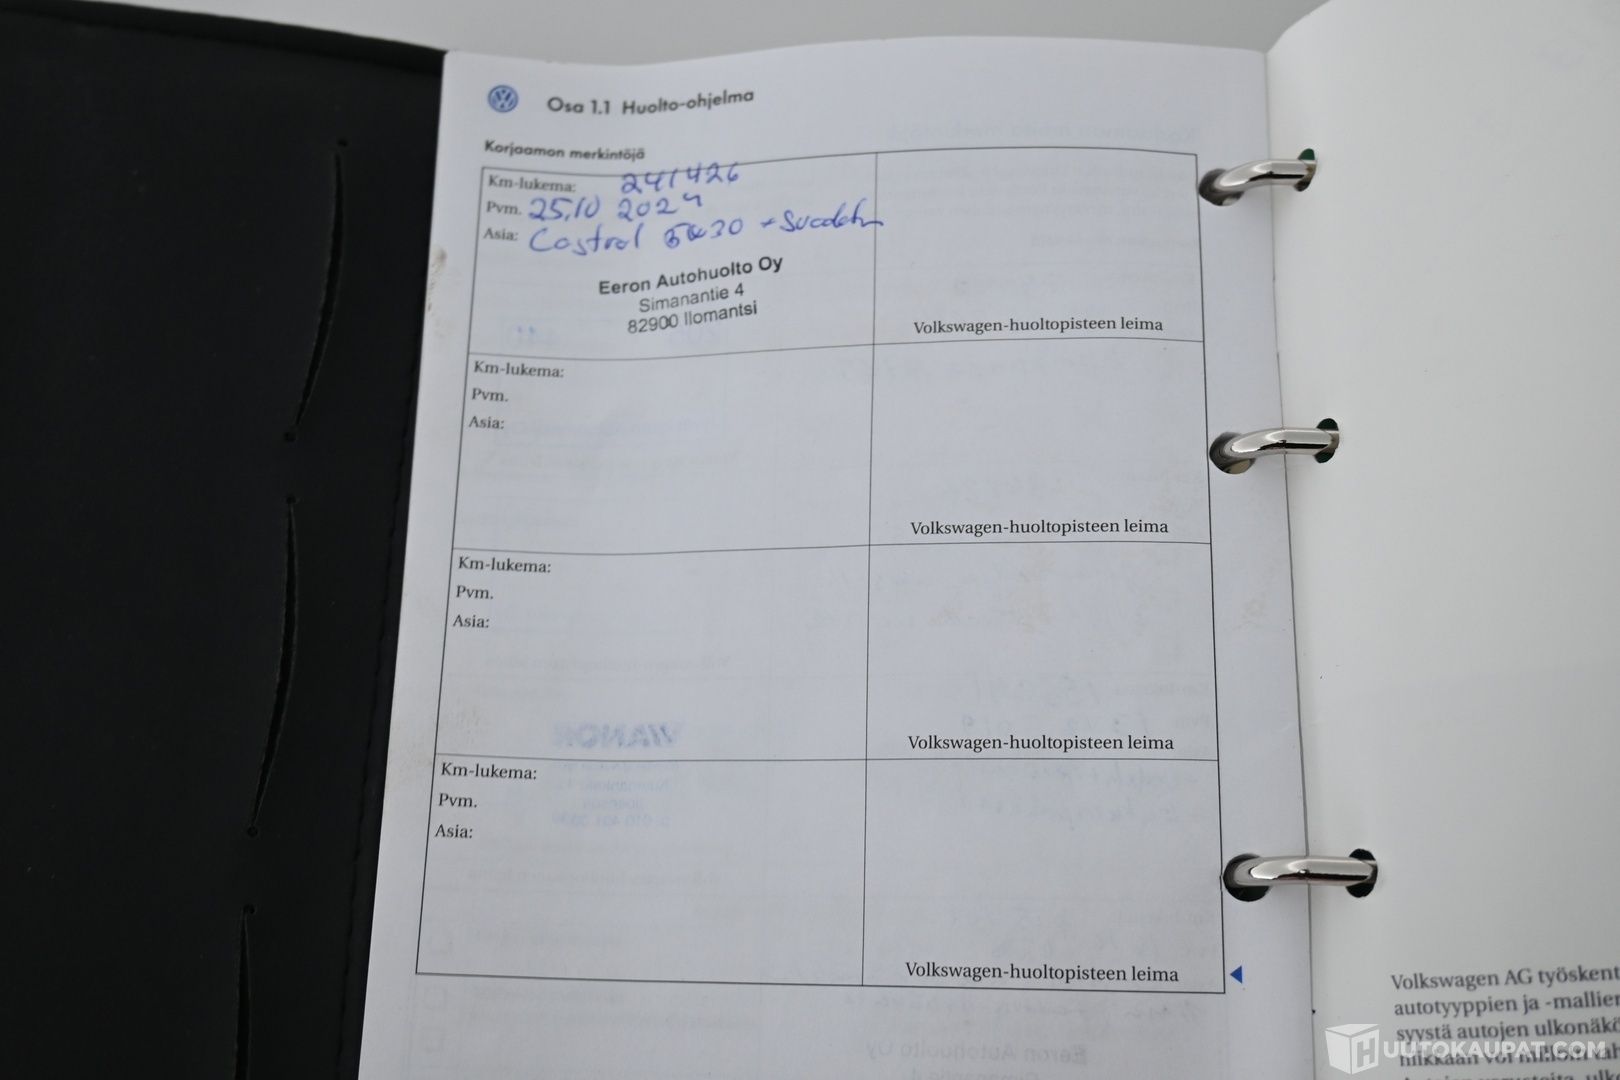 Osa 1.1 Huolto-ohjelma
Korjaamon merkintöjä
Km-lukema: 241426
Pvm. 25.10 2024
Asia: Castrol 5W30 + Suodatin
Eeron Autohuolto Oy
Simanantie 4
82900 Ilomantsi
Volkswagen-huoltopisteen leima
Km-lukema:
Pvm.
Asia:
Volkswagen-huoltopisteen leima
Km-lukema:
Pvm.
Asia:
Volkswagen-huoltopisteen leima
Km-lukema:
Pvm.
Asia:
Volkswagen-huoltopisteen leima
Volkswagen AG työskent
autotyyppien ja -mallien
syystä autojen ulkonäkö
HUUTOKAUPAT.COM